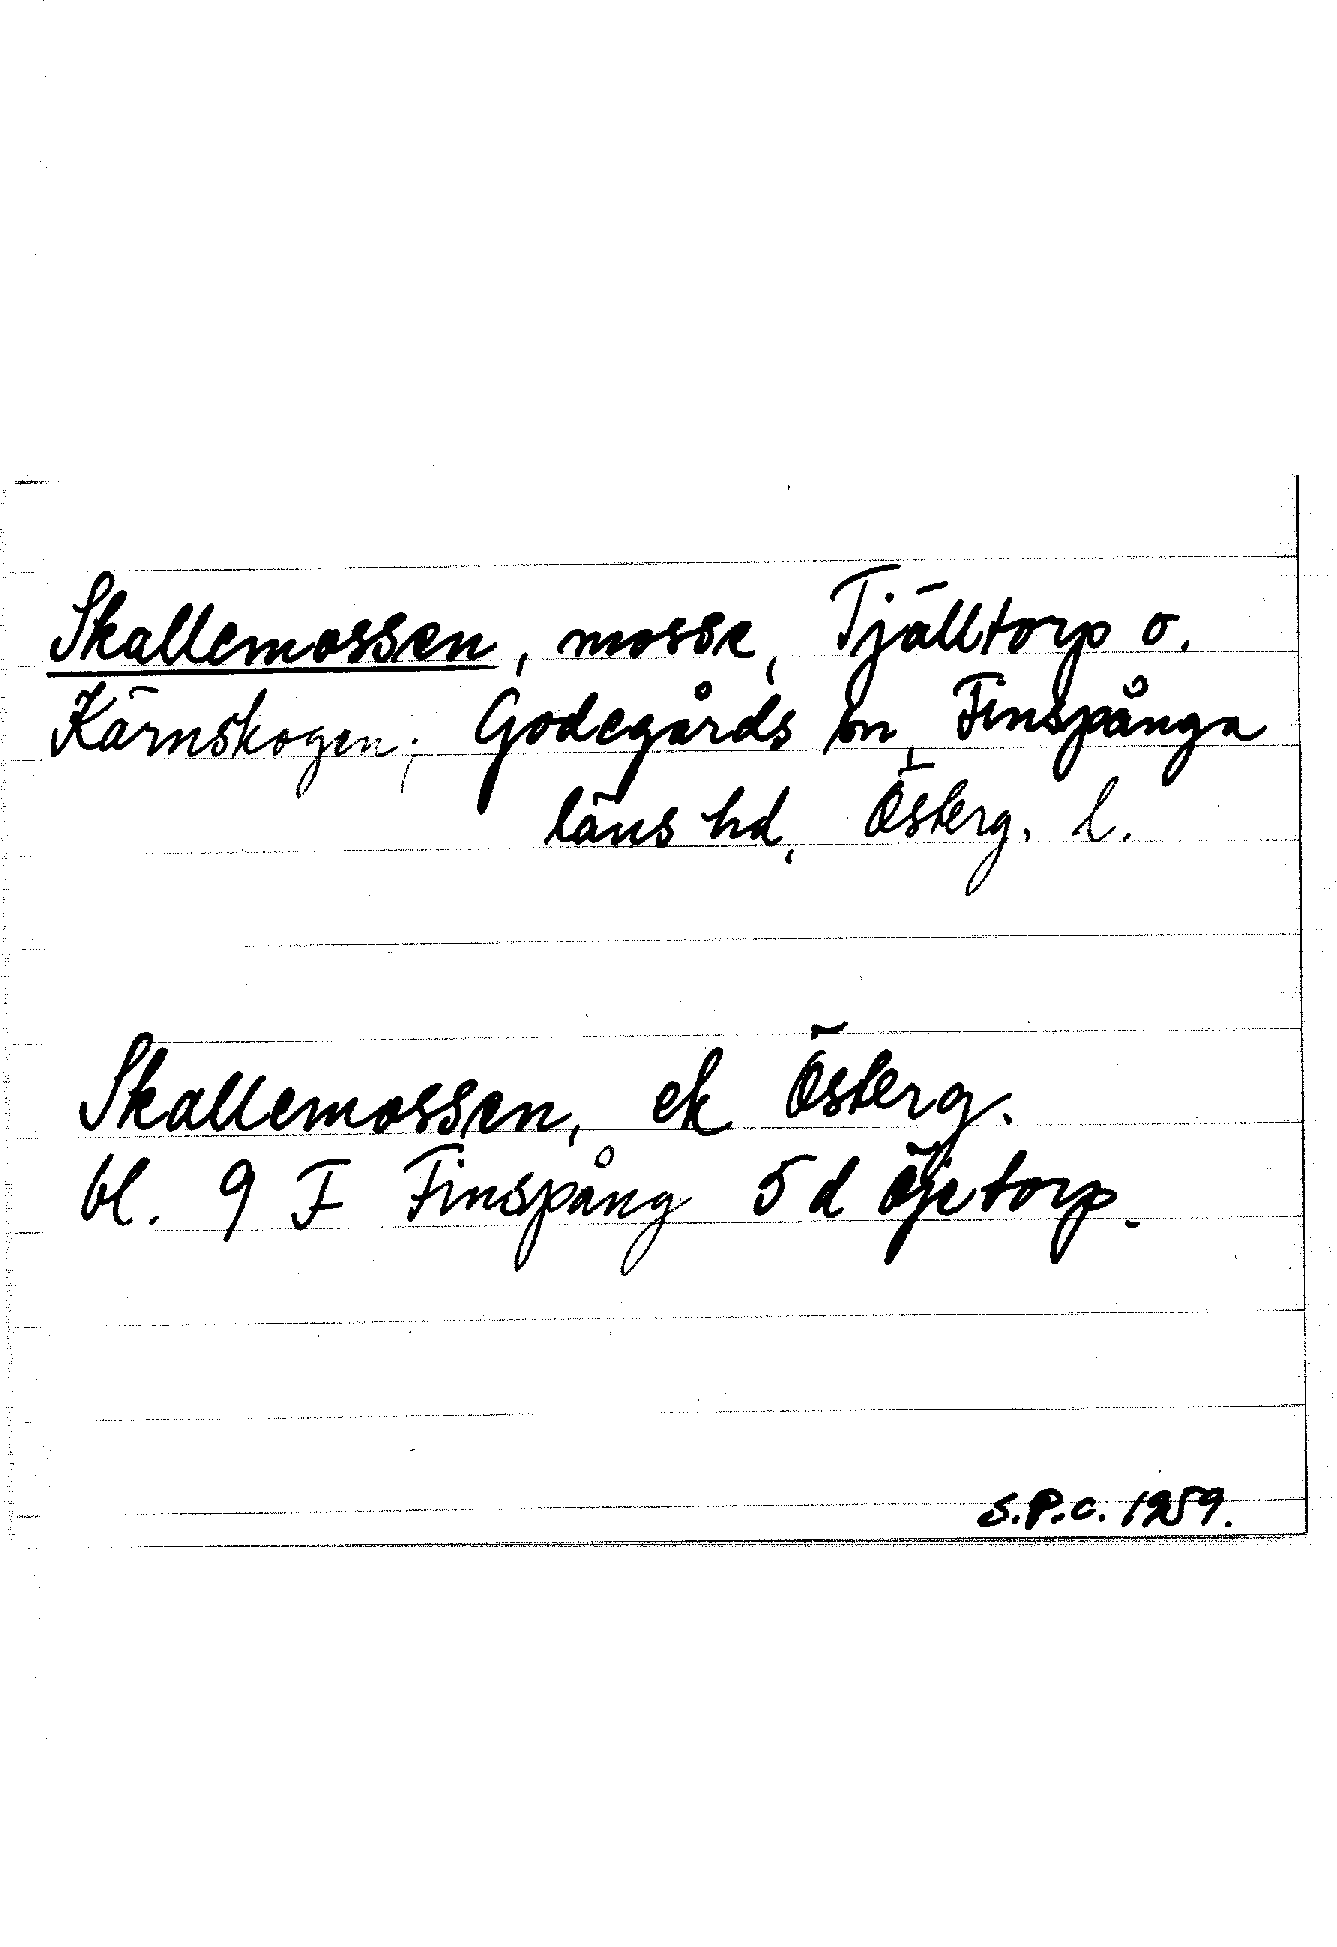 Skallemossen, mosse, Tjälltorp o.
Kärnskogen; Godegårds sn, Finspånga
läns hd, Österg. l.
Skallemossen, ek Österg.
bl. 9 F Finspång 5 d Öjetorp.
S.P.C. 1959.